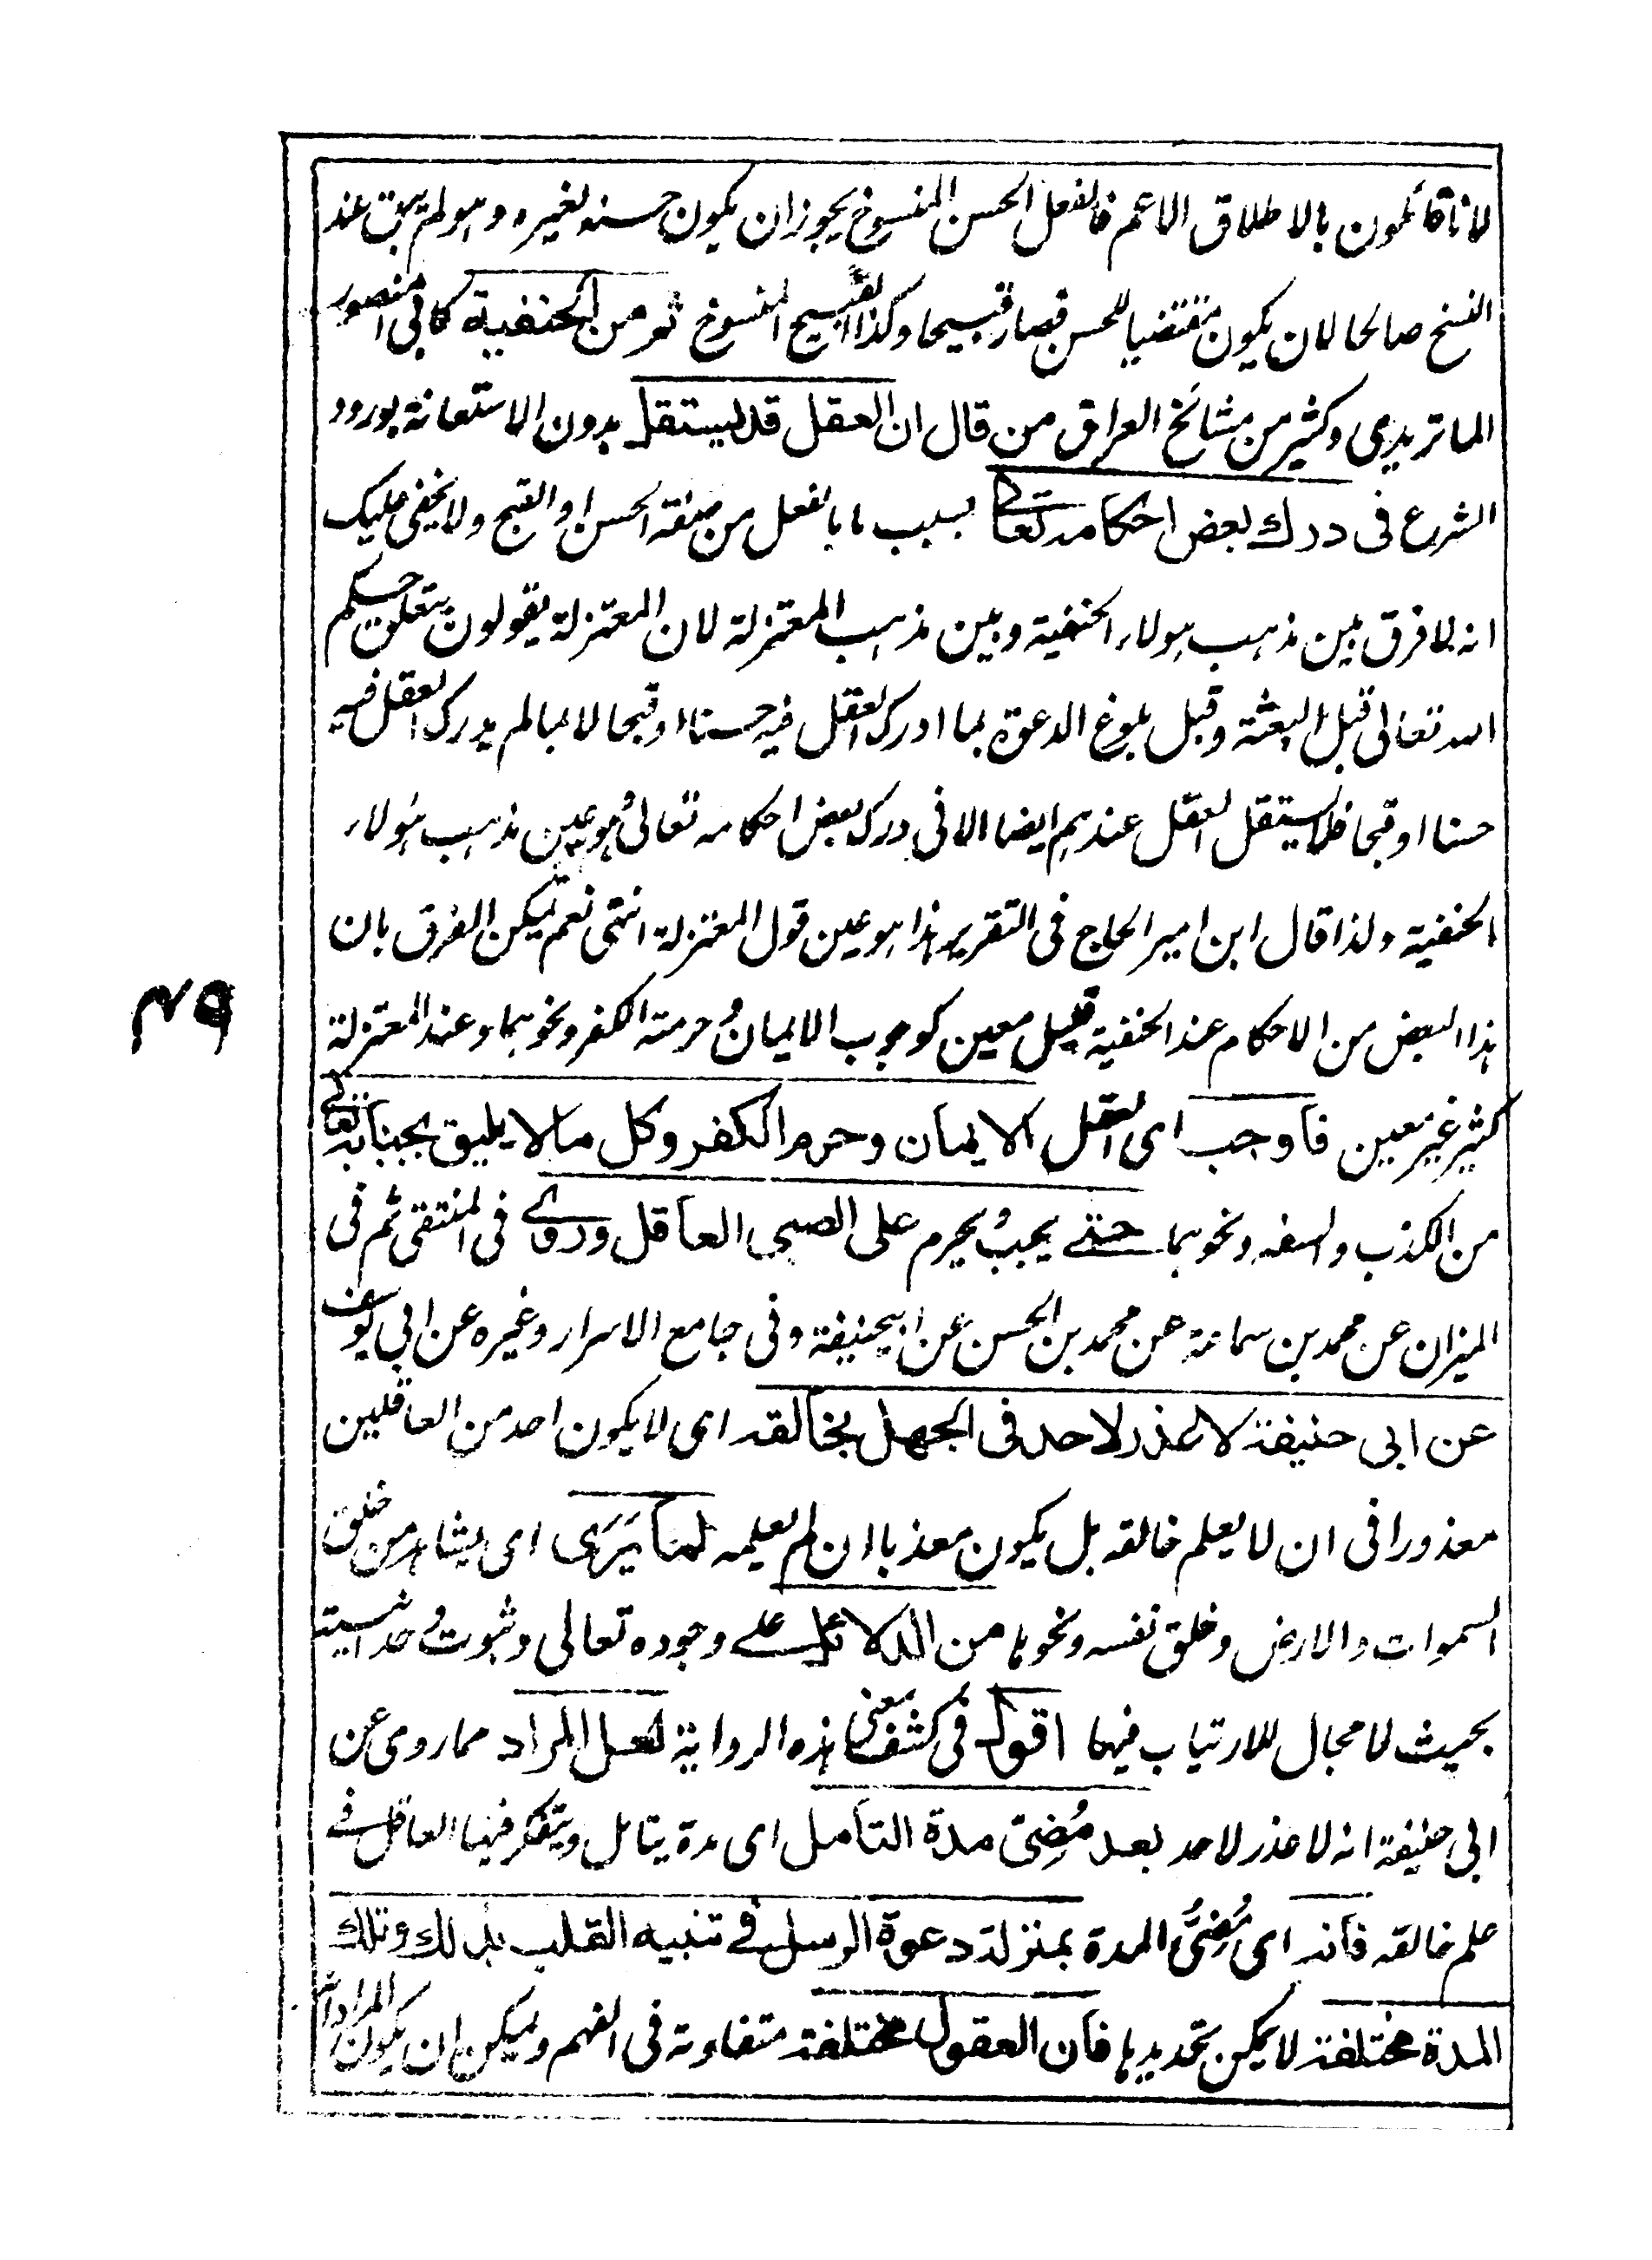 لانا قائلون بالاطلاق الاعم فالفعل الحسن المنسوخ يجوز ان يكون حسنه لغيره وهو لم يبق عند
النسخ صالحا لان يكون مقتضيا للحسن فصار قبيحا وكذا القبيح المنسوخ ثم من الحنفية كابي منصور
الماتريدي وكثير من مشائخ العراق من قال ان العقل قد يستقل بدون الاستعانة بورود
الشرع في درك بعض احكامه تعالى بسبب ما بالفعل من صفة الحسن او القبح ولا يخفى عليك
انه لا فرق بين مذهب هولاء الحنفية وبين مذهب المعتزلة لان المعتزلة يقولون بتعلق حكم
الله تعالى قبل البعثة وقبل بلوغ الدعوة بما ادرك العقل فيه حسنا او قبحا لا بما لم يدرك العقل فيه
حسنا او قبحا فلا يستقل العقل عندهم ايضا الا في درك بعض احكامه تعالى وهو عين مذهب هؤلاء
الحنفية ولذا قال ابن امير الحاج في التقرير هذا هو عين قول المعتزلة انتهى نعم يمكن الفرق بان
هذا البعض من الاحكام عند الحنفية قليل معين كوجوب الايمان وحرمة الكفر ونحوهما وعند المعتزلة
كثير غير معين فاوجب اى العقل الايمان وحرم الكفر وكل ما لا يليق بجنابه تعالى
من الكذب والسفه ونحوهما حتى يجب ويحرم على الصبي العاقل وروى في المنتقى ثم في
الميزان عن محمد بن سماعة عن محمد بن الحسن عن ابيحنيفة وفي جامع الاسرار وغيره عن ابي يوسف
عن ابي حنيفة لا عذر لاحد في الجهل بخالقه اى لا يكون احد من العاقلين
معذورا في ان لا يعلم خالقه بل يكون معذبا ان لم يعلمه لما يَرَى اى يشاهد من خلق
السموات والارض وخلق نفسه ونحوها من الدلائل على وجوده تعالى وثبوت وحدانيته
بحيث لا مجال للارتياب فيها اقول في كشف معنى هذه الرواية لعل المراد مما روى عن
ابي حنيفة انه لا عذر لاحد بعد مُضِىّ مدة التأمل اى مدة يتأمل ويتفكر فيها العاقل في
علم خالقه فانه اى مُضِىُّ المدة بمنزلة دعوة الرسل في تنبيه القلب بذلك وتلك
المدة مختلفة لا يمكن تحديدها فان العقول مختلفة متفاوتة في الفهم ويمكن ان يكون المراد انه
۴۹